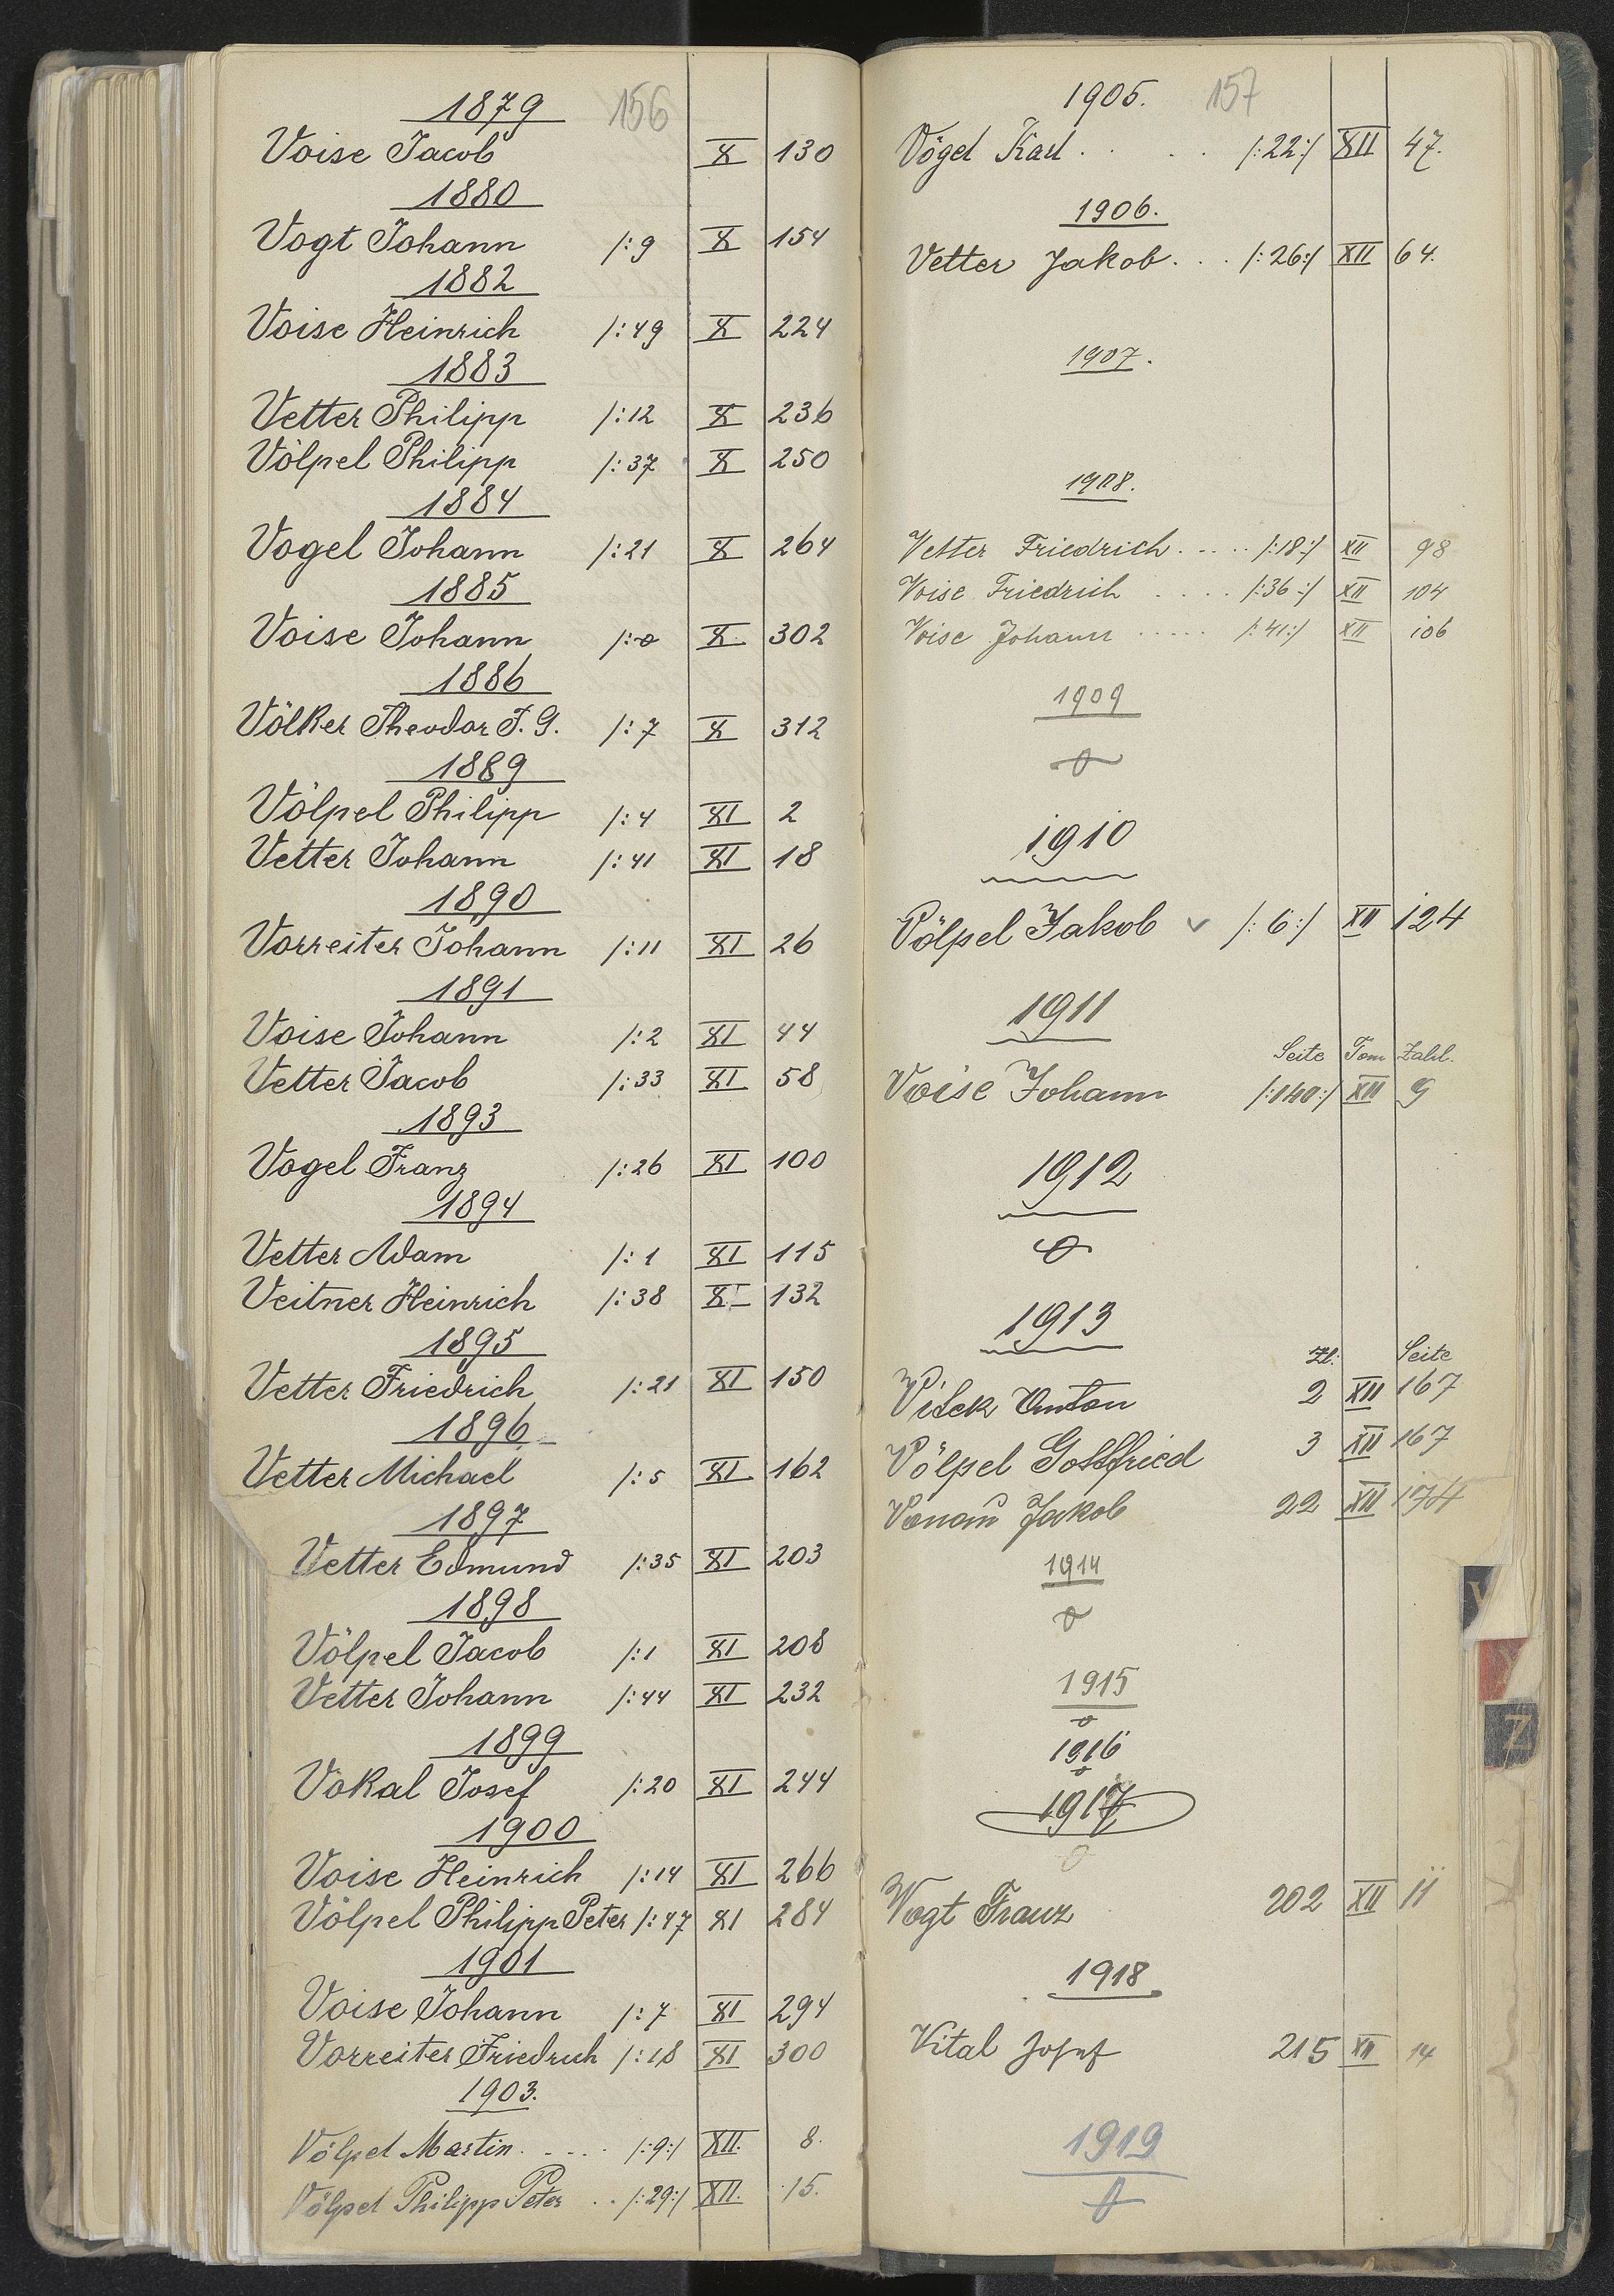 1879 156
Voise Jacob X 130
1880
Vogt Johann /:9 X 154
1882
Voise Heinrich /:49 X 224
1883
Vetter Philipp /:12 X 236
Völpel Philipp /:37 X 250
1884
Vogel Johann /:21 X 264
1885
Voise Johann /:o X 302
1886
Völker Theodor J. G. /:7 X 312
1889
Völpel Philipp /:4 XI 2
Vetter Johann /:41 XI 18
1890
Vorreiter Johann /:11 XI 26
1891
Voise Johann /:2 XI 44
Vetter Jacob /:33 XI 58
1893
Vogel Franz /:26 XI 100
1894
Vetter Adam /:1 XI 115
Veitner Heinrich /:38 XI 132
1895
Vetter Friedrich /:21 XI 150
1896
Vetter Michael /:5 XI 162
1897
Vetter Edmund /:35 XI 203
1898
Völpel Jacob /:1 XI 208
Vetter Johann /:44 XI 232
1899
Vokal Josef /:20 XI 244
1900
Voise Heinrich /:14 XI 266
Völpel Philipp Peter /:47 XI 284
1901
Voise Johann /:7 XI 294
Vorreiter Friedrich /:18 XI 300
1903.
Völpel Martin. . . . . /:9:/ XII. 8.
Völpel Philipp Peter . . /:29:/ XII. 15.
1905. 157
Vögel Karl . . . . /:22:/ XII 47.
1906.
Vetter Jakob. . . /:26:/ XII 64.
1907.
1908.
Vetter Friedrich. . . . . /:18:/ XII 98
Voise Friedrich . . . . . /:36:/ XII 104
Voise Johann . . . . . /:41:/ XII 106
1909
1910
Völpel Jakob /:6:/ XII 124
1911
Seite Tom Zahl.
Voise Johann /:140:/ XII 9
1912
1913
Zl: Seite
Vitek Anton 2 XII 167
Völpel Gottfried 3 XII 167
Vonau Jakob 22 XII 174
1914
1915
1916
1917
Vogt Franz 202 XII 11
1918
Vital Josef 215 XII 14
1919
V
Z